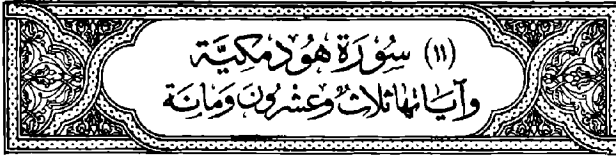 (١١) سُورَةُ هُودٍ مَكِيَّة
وَآيَاتُهَا ثَلَاثٌ وَعِشْرُونَ وَمِائَة